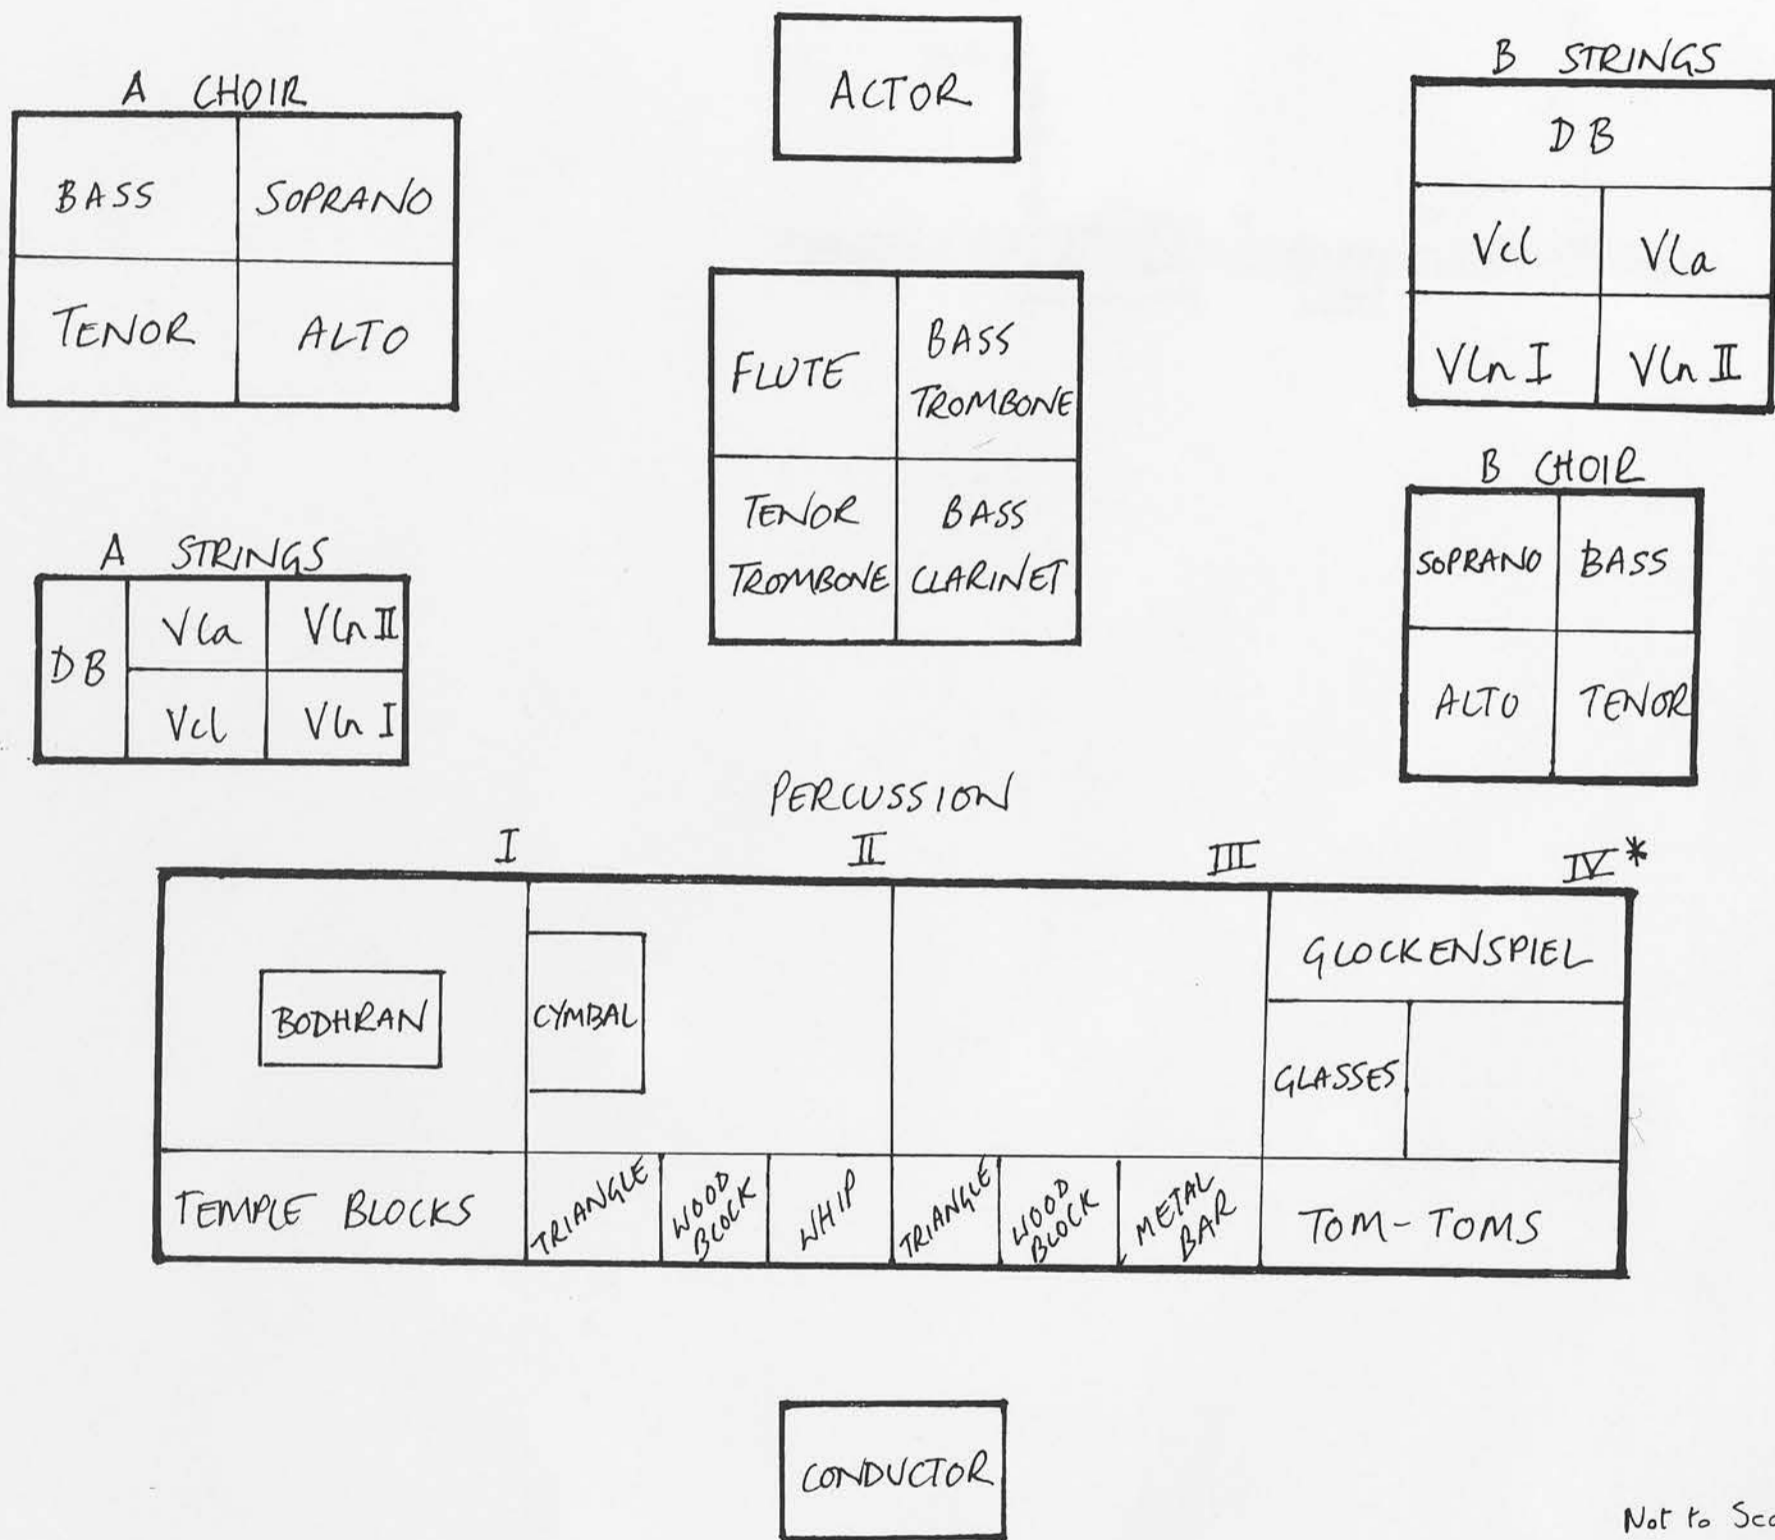 ACTOR
A CHOIR
BASS SOPRANO
TENOR ALTO
B STRINGS
DB
Vcl Vla
Vln I Vln II
FLUTE
BASS
TROMBONE
TENOR
TROMBONE
BASS
CLARINET
A STRINGS
DB
Vla Vln II
Vcl Vln I
B CHOIR
SOPRANO BASS
ALTO TENOR
PERCUSSION
I II III IV*
BODHRAN
CYMBAL
GLOCKENSPIEL
GLASSES
TEMPLE BLOCKS
TRIANGLE
WOOD
BLOCK
WHIP
TRIANGLE
WOOD
BLOCK
METAL
BAR
TOM-TOMS
CONDUCTOR
Not to